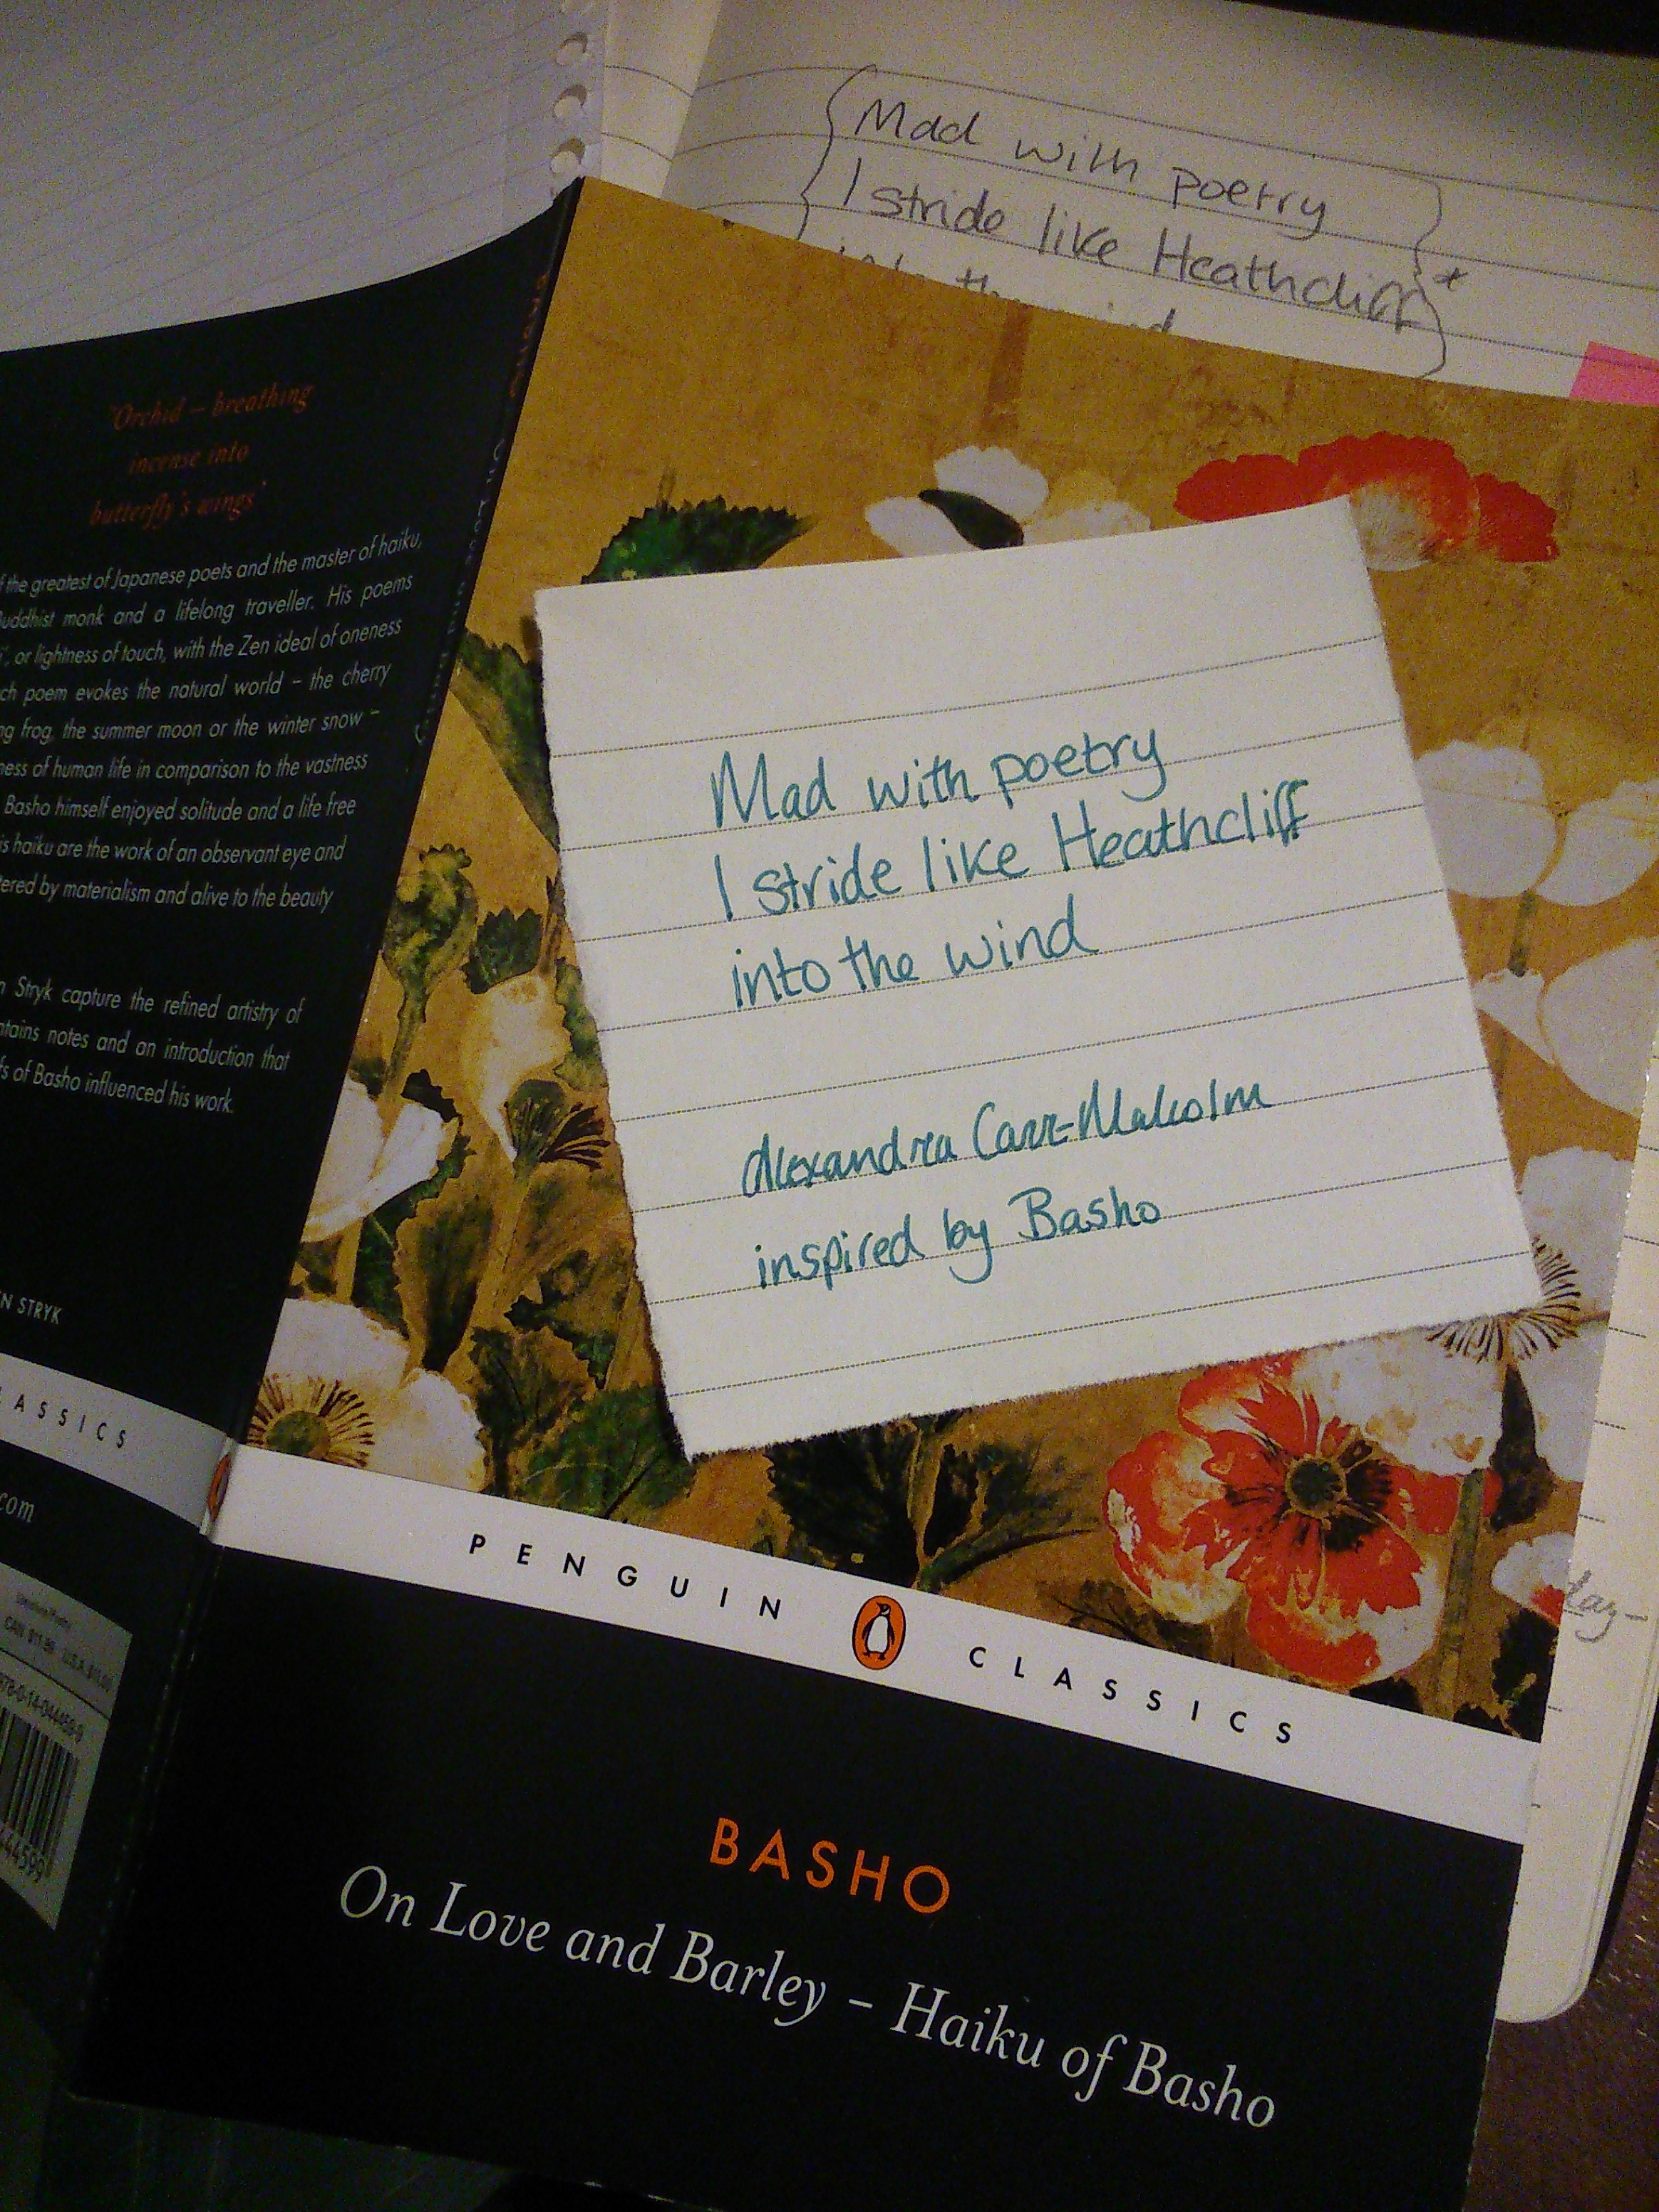 Mad with poetry
I stride like Heathcliff *
into the wind
'Orchid – breathing
incense into
butterfly's wings'
the greatest of Japanese poets and the master of haiku,
Buddhist monk and a lifelong traveller. His poems
or lightness of touch, with the Zen ideal of oneness
ch poem evokes the natural world – the cherry
ng frog, the summer moon or the winter snow –
ness of human life in comparison to the vastness
Basho himself enjoyed solitude and a life free
is haiku are the work of an observant eye and
tered by materialism and alive to the beauty
n Stryk capture the refined artistry of
ntains notes and an introduction that
fs of Basho influenced his work.
N STRYK
ASSICS
com
Mad with poetry
I stride like Heathcliff
into the wind
Alexandra Carr-Malcolm
inspired by Basho
PENGUIN CLASSICS
BASHO
On Love and Barley – Haiku of Basho